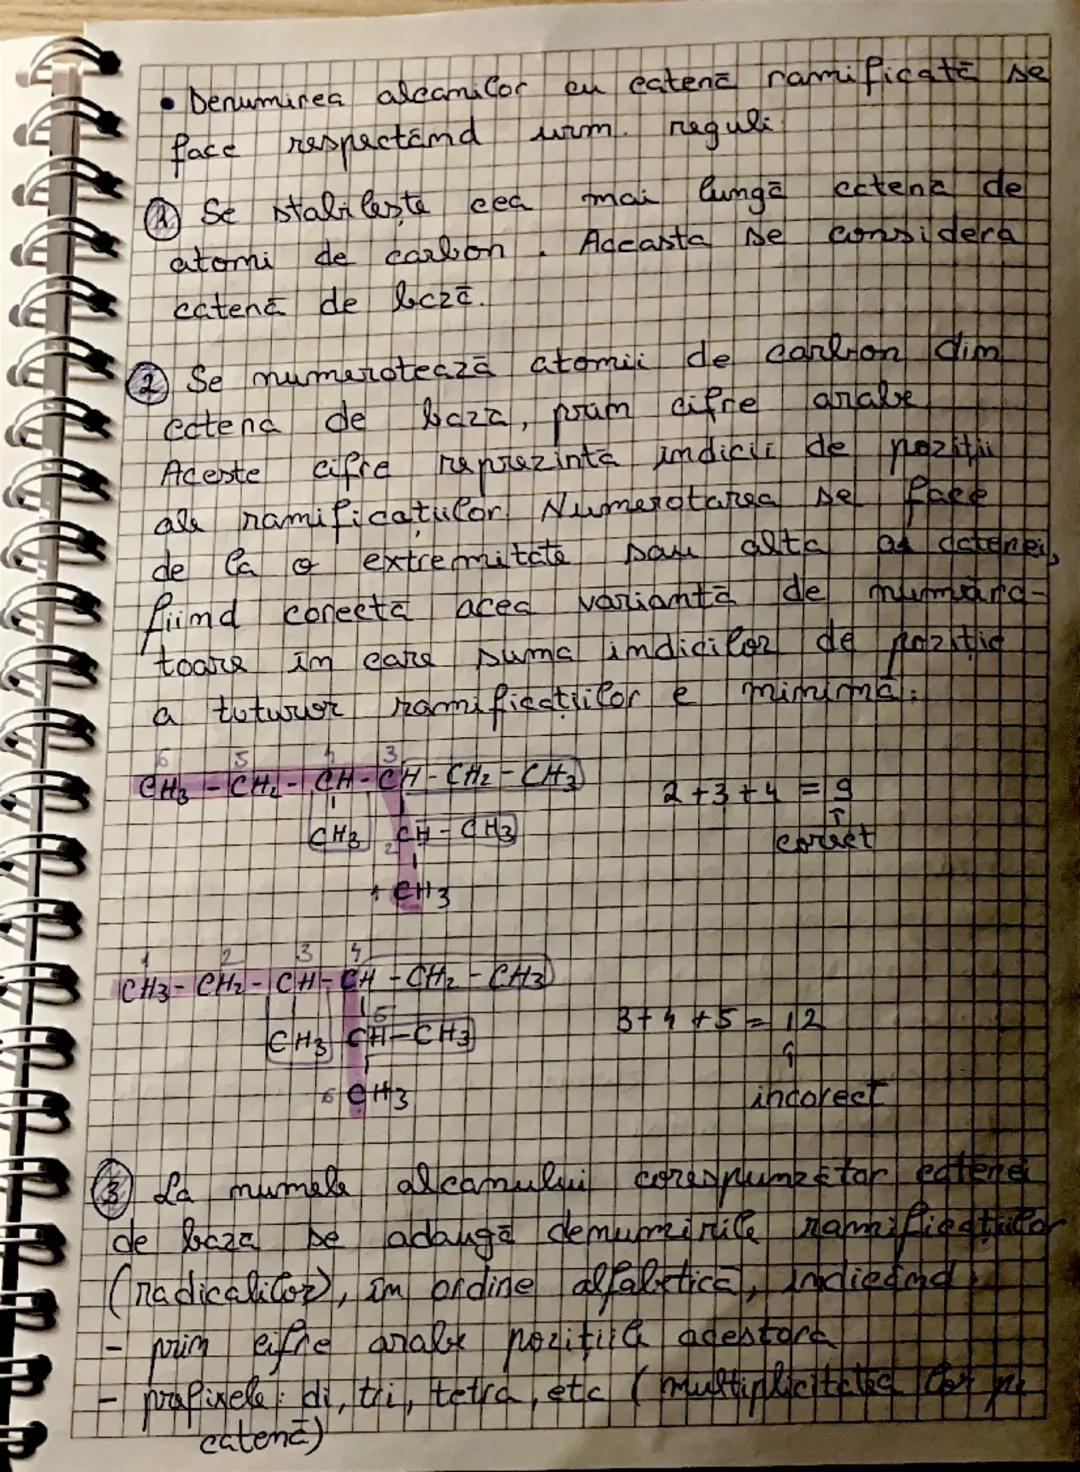 • Denumirea alcanilor cu catenă ramificată se
face respectând urm. reguli
1 Se stabilește cea mai lungă catenă de
atomi de carbon. Aceasta se consideră
catenă de bază.
2 Se numerotează atomii de carbon din
catena de bază, prin cifre arabe
Aceste cifre reprezintă indicii de poziții
ale ramificațiilor. Numerotarea se face
de la o extremitate sau alta a catenei,
fiind corectă acea variantă de numără-
toare în care suma indicilor de poziție
a tuturor ramificațiilor e minimă:
6 5 4 3
CH3 - CH2 - CH - CH - CH2 - CH3
2+3+4 = 9
CH3 2 CH - CH3
corect
1 CH3
1 2 3 4
CH3 - CH2 - CH - CH - CH2 - CH3
5
3+4+5 = 12
CH3 CH - CH3
6 CH3
incorect
3 La numele alcanului corespunzător catenei
de bază se adaugă denumirile ramificațiilor
(radicalilor), în ordine alfabetică, indicând:
- prin cifre arabe poziția acestora
- prefixele: di, tri, tetra, etc (multiplicitatea lor pe
catenă)